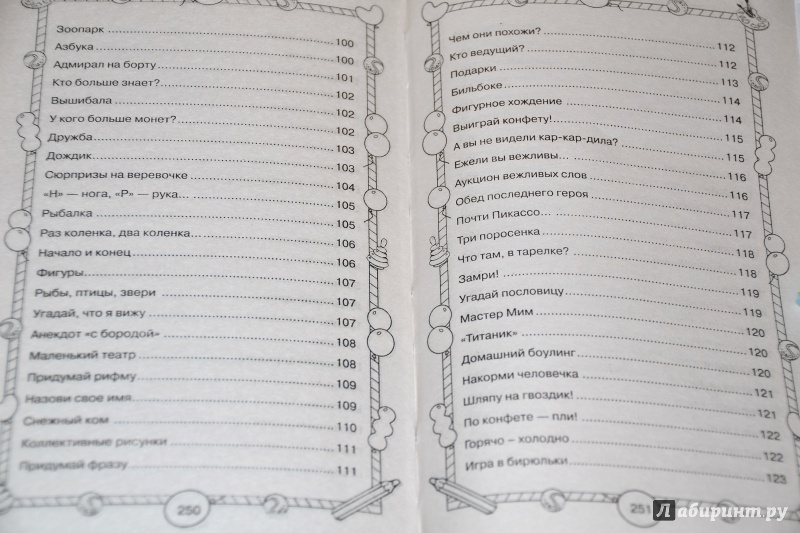 Зоопарк ........ 100
Азбука ........ 100
Адмирал на борту ........ 101
Кто больше знает? ........ 102
Вышибала ........ 102
У кого больше монет? ........ 102
Дружба ........ 103
Дождик ........ 103
Сюрпризы на веревочке ........ 104
«Н» — нога, «Р» — рука... ........ 105
Рыбалка ........ 105
Раз коленка, два коленка... ........ 106
Начало и конец ........ 106
Фигуры ........ 107
Рыбы, птицы, звери ........ 107
Угадай, что я вижу ........ 107
Анекдот «с бородой» ........ 108
Маленький театр ........ 108
Придумай рифму ........ 109
Назови свое имя ........ 109
Снежный ком ........ 110
Коллективные рисунки ........ 111
Придумай фразу ........ 111
250
Чем они похожи? ........ 112
Кто ведущий? ........ 112
Подарки ........ 113
Бильбоке ........ 114
Фигурное хождение ........ 114
Выиграй конфету! ........ 115
А вы не видели кар-кар-дила? ........ 115
Ежели вы вежливы... ........ 116
Аукцион вежливых слов ........ 116
Обед последнего героя ........ 117
Почти Пикассо... ........ 117
Три поросенка ........ 118
Что там, в тарелке? ........ 118
Замри! ........ 119
Угадай пословицу ........ 119
Мастер Мим ........ 120
«Титаник» ........ 120
Домашний боулинг ........ 120
Накорми человечка ........ 121
Шляпу на гвоздик! ........ 121
По конфете — пли! ........ 122
Горячо – холодно ........ 122
Игра в бирюльки ........ 123
251
Лабиринт.ру